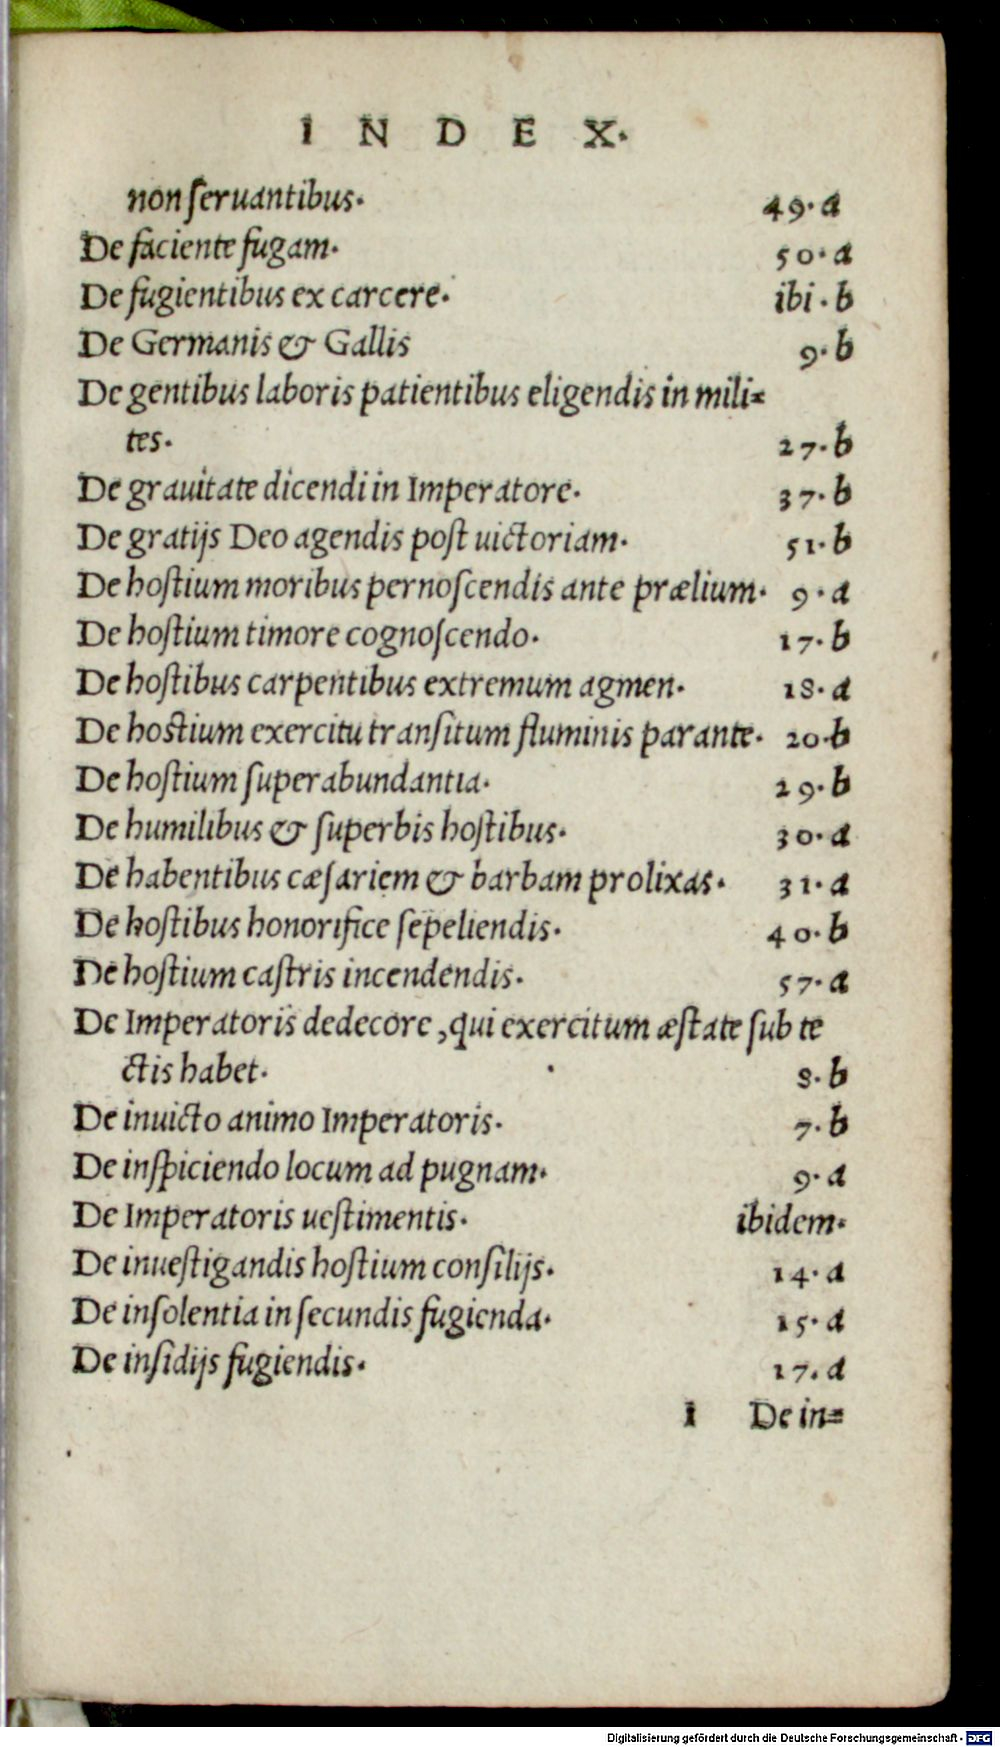 INDEX.
non seruantibus. 49. a
De faciente fugam. 50. a
De fugientibus ex carcere. ibi. b
De Germanis & Gallis 9. b
De gentibus laboris patientibus eligendis in mili=
tes. 27. b
De grauitate dicendi in Imperatore. 37. b
De gratijs Deo agendis post uictoriam. 51. b
De hostium moribus pernoscendis ante prælium. 9. a
De hostium timore cognoscendo. 17. b
De hostibus carpentibus extremum agmen. 18. a
De hostium exercitu transitum fluminis parante. 20. b
De hostium superabundantia. 29. b
De humilibus & superbis hostibus. 30. a
De habentibus cæsariem & barbam prolixas. 31. a
De hostibus honorifice sepeliendis. 40. b
De hostium castris incendendis. 57. a
De Imperatoris dedecore, qui exercitum æstate sub te
ctis habet. 8. b
De inuicto animo Imperatoris. 7. b
De inspiciendo locum ad pugnam. 9. a
De Imperatoris uestimentis. ibidem.
De inuestigandis hostium consilijs. 14. a
De insolentia in secundis fugienda. 15. a
De insidijs fugiendis. 17. a
I De in=
Digitalisierung gefördert durch die Deutsche Forschungsgemeinschaft - DFG